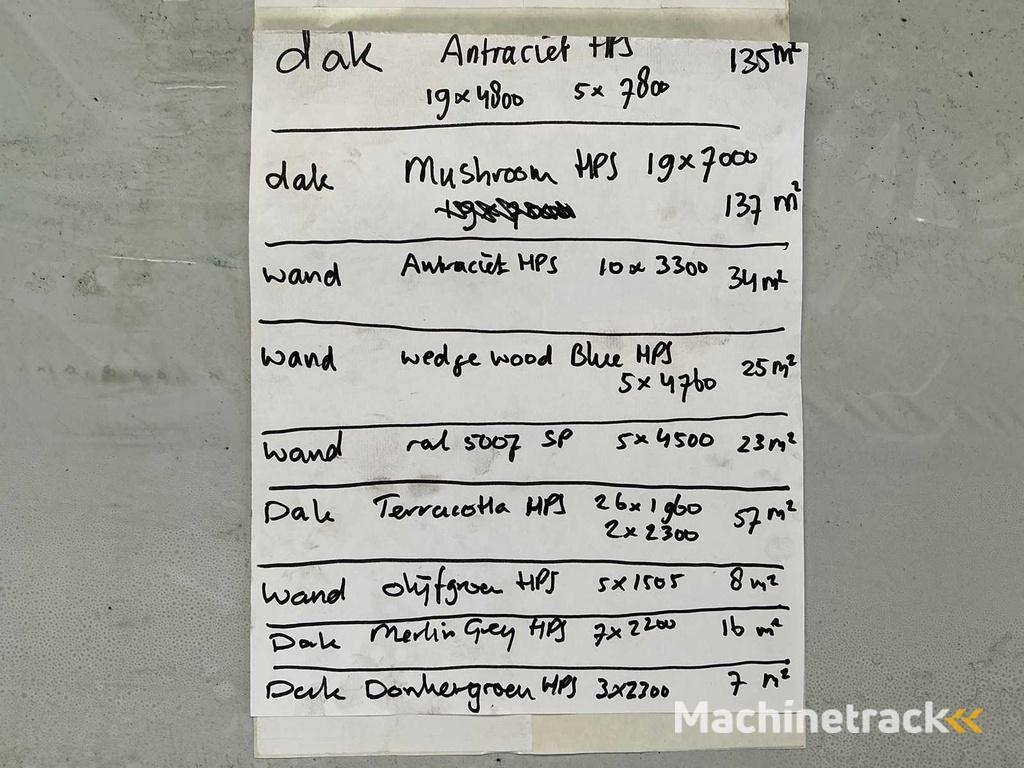 dak Antraciet HPS 135 m²
19 x 4800 5 x 7800
dak Mushroom HPS 19 x 7000
137 m²
wand Antraciet HPS 10 x 3300 34 m²
wand wedge wood Blue HPS 25 m²
5 x 4760
wand ral 5007 SP 5 x 4500 23 m²
Dak Terracotta HPS 26 x 1960 57 m²
2 x 2300
wand olijfgroen HPS 5 x 1505 8 m²
Dak Merlin Grey HPS 7 x 2200 16 m²
Dak Donkergroen HPS 3 x 2300 7 m²
Machinetrack